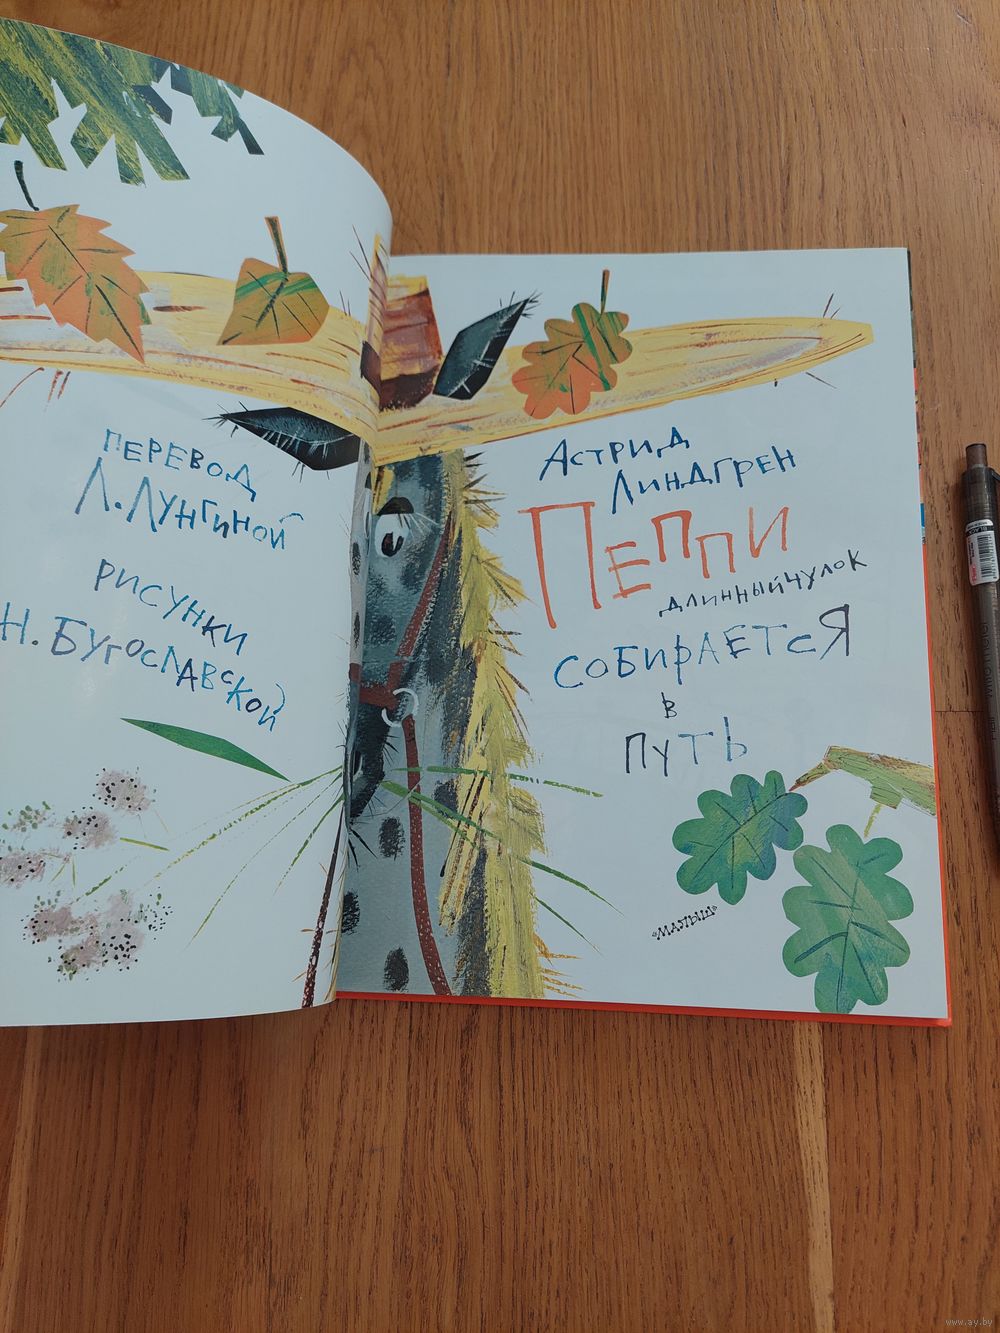 ПЕРЕВОД
Л. ЛУНГИНОЙ
РИСУНКИ
Н. БУГОСЛАВСКОЙ
АСТРИД
ЛИНДГРЕН
ПЕППИ
ДЛИННЫЙЧУЛОК
СОБИРАЕТСЯ
В
ПУТЬ
«МАЛЫШ»
www.ay.by